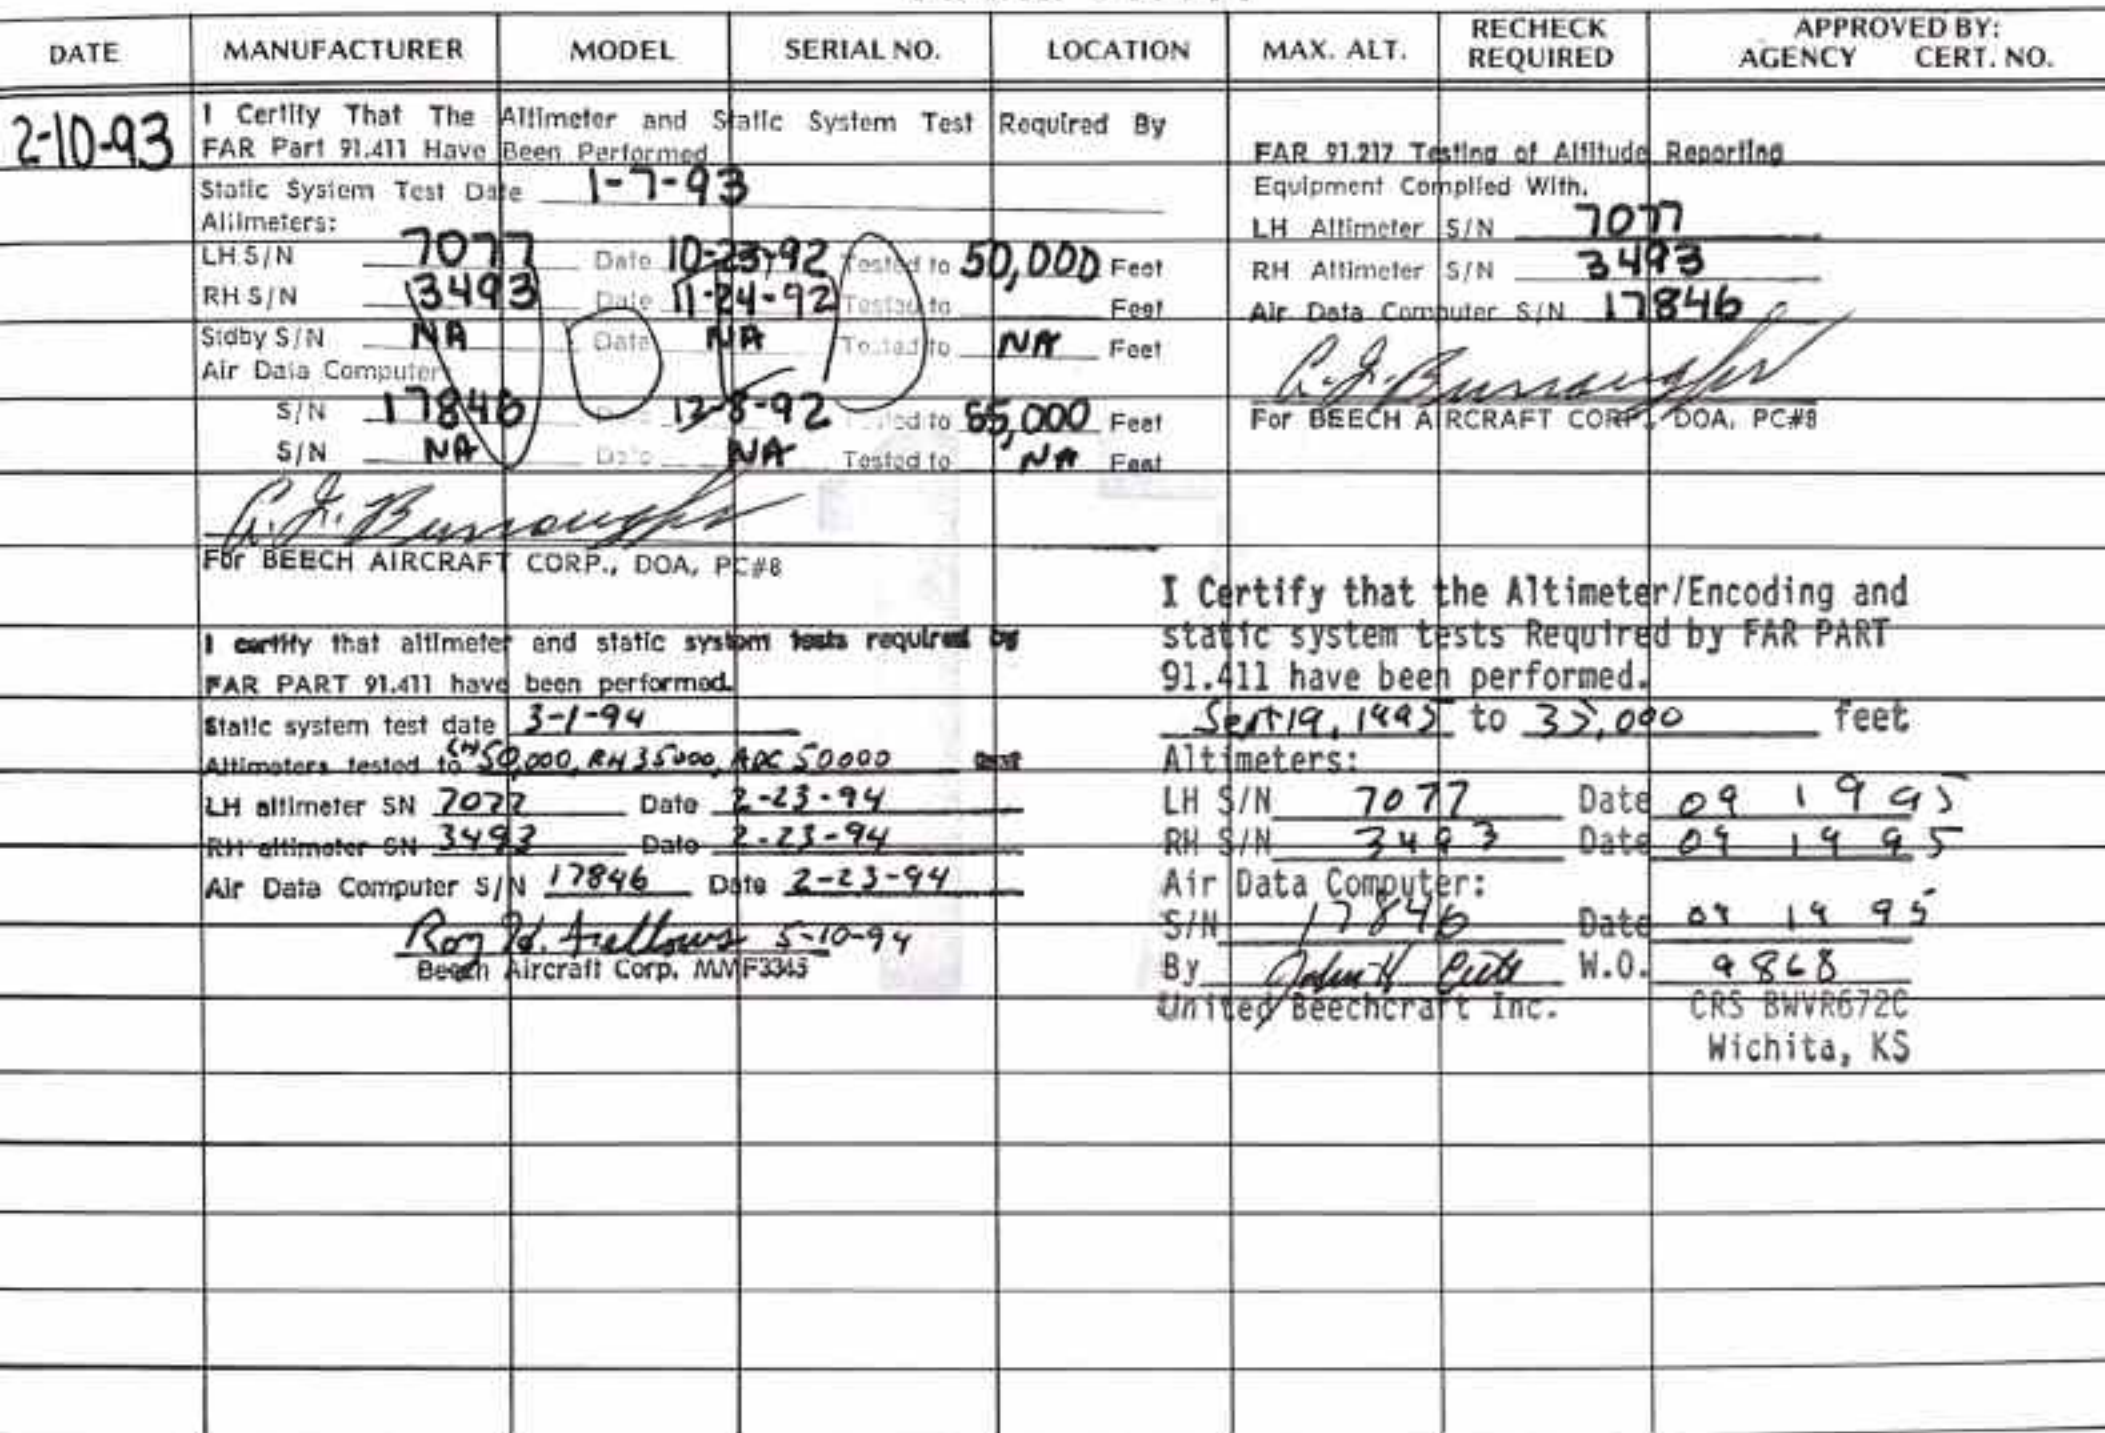 DATE MANUFACTURER MODEL SERIAL NO. LOCATION MAX. ALT. RECHECK REQUIRED APPROVED BY: AGENCY CERT. NO.
2-10-93
I Certify That The Altimeter and Static System Test Required By
FAR Part 91.411 Have Been Performed
Static System Test Date 1-7-93
Altimeters:
LH S/N 7077 Date 10-23-92 Tested to 50,000 Feet
RH S/N 3493 Date 11-24-92 Tested to Feet
Stdby S/N NA Date NA Tested to NA Feet
Air Data Computer
S/N 17846 12-8-92 Tested to 55,000 Feet
S/N NA Date NA Tested to NA Feet
For BEECH AIRCRAFT CORP., DOA, PC#8
FAR 91.217 Testing of Altitude Reporting
Equipment Complied With.
LH Altimeter S/N 7077
RH Altimeter S/N 3493
Air Data Computer S/N 17846
For BEECH AIRCRAFT CORP., DOA, PC#8
I certify that altimeter and static system tests required by
FAR PART 91.411 have been performed.
Static system test date 3-1-94
Altimeters tested to LH 50,000, RH 35000, ADC 50000 feet
LH altimeter SN 7077 Date 2-23-94
RH altimeter SN 3493 Date 2-23-94
Air Data Computer S/N 17846 Date 2-23-94
5-10-94
Beech Aircraft Corp. MMF3345
I Certify that the Altimeter/Encoding and
static system tests Required by FAR PART
91.411 have been performed.
Sept 19, 1995 to 35,000 feet
Altimeters:
LH S/N 7077 Date 09 19 95
RH S/N 3493 Date 09 19 95
Air Data Computer:
S/N 17846 Date 09 19 95
By John H W.O. 9868
United Beechcraft Inc. CRS BWVR672C
Wichita, KS